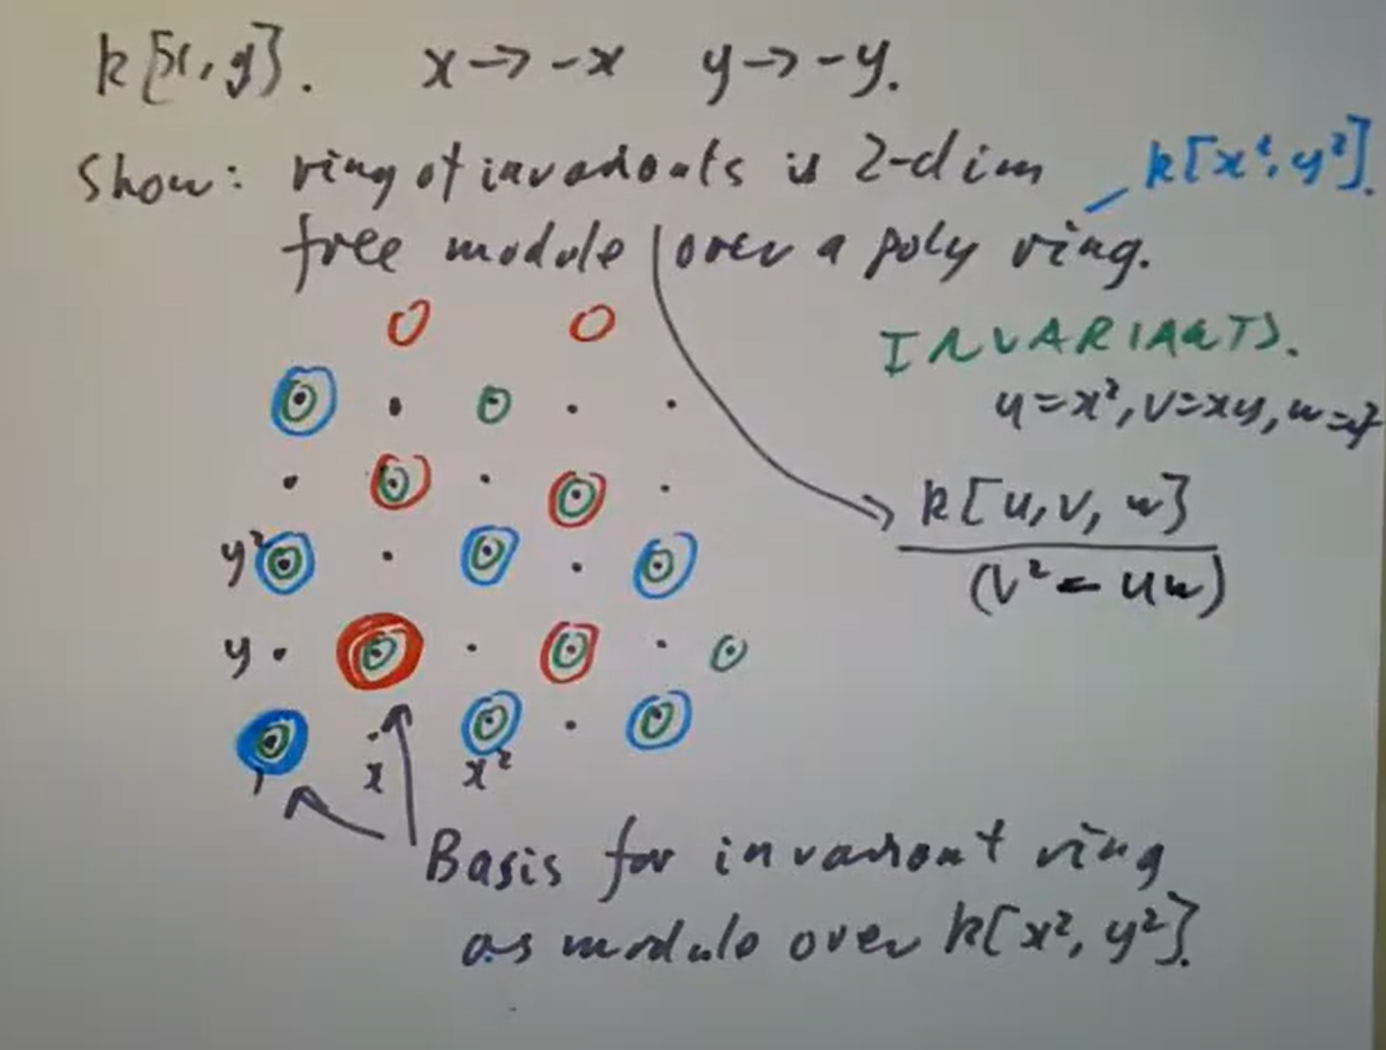 k[x,y]. x→-x y→-y.
Show: ring of invariants is 2-dim
free module over a poly ring.
k[x²,y²].
INVARIANTS.
u=x², v=xy, w=y²
k[u,v,w]
(v²=uw)
y²
y
1 x x²
Basis for invariant ring
as module over k[x²,y²].